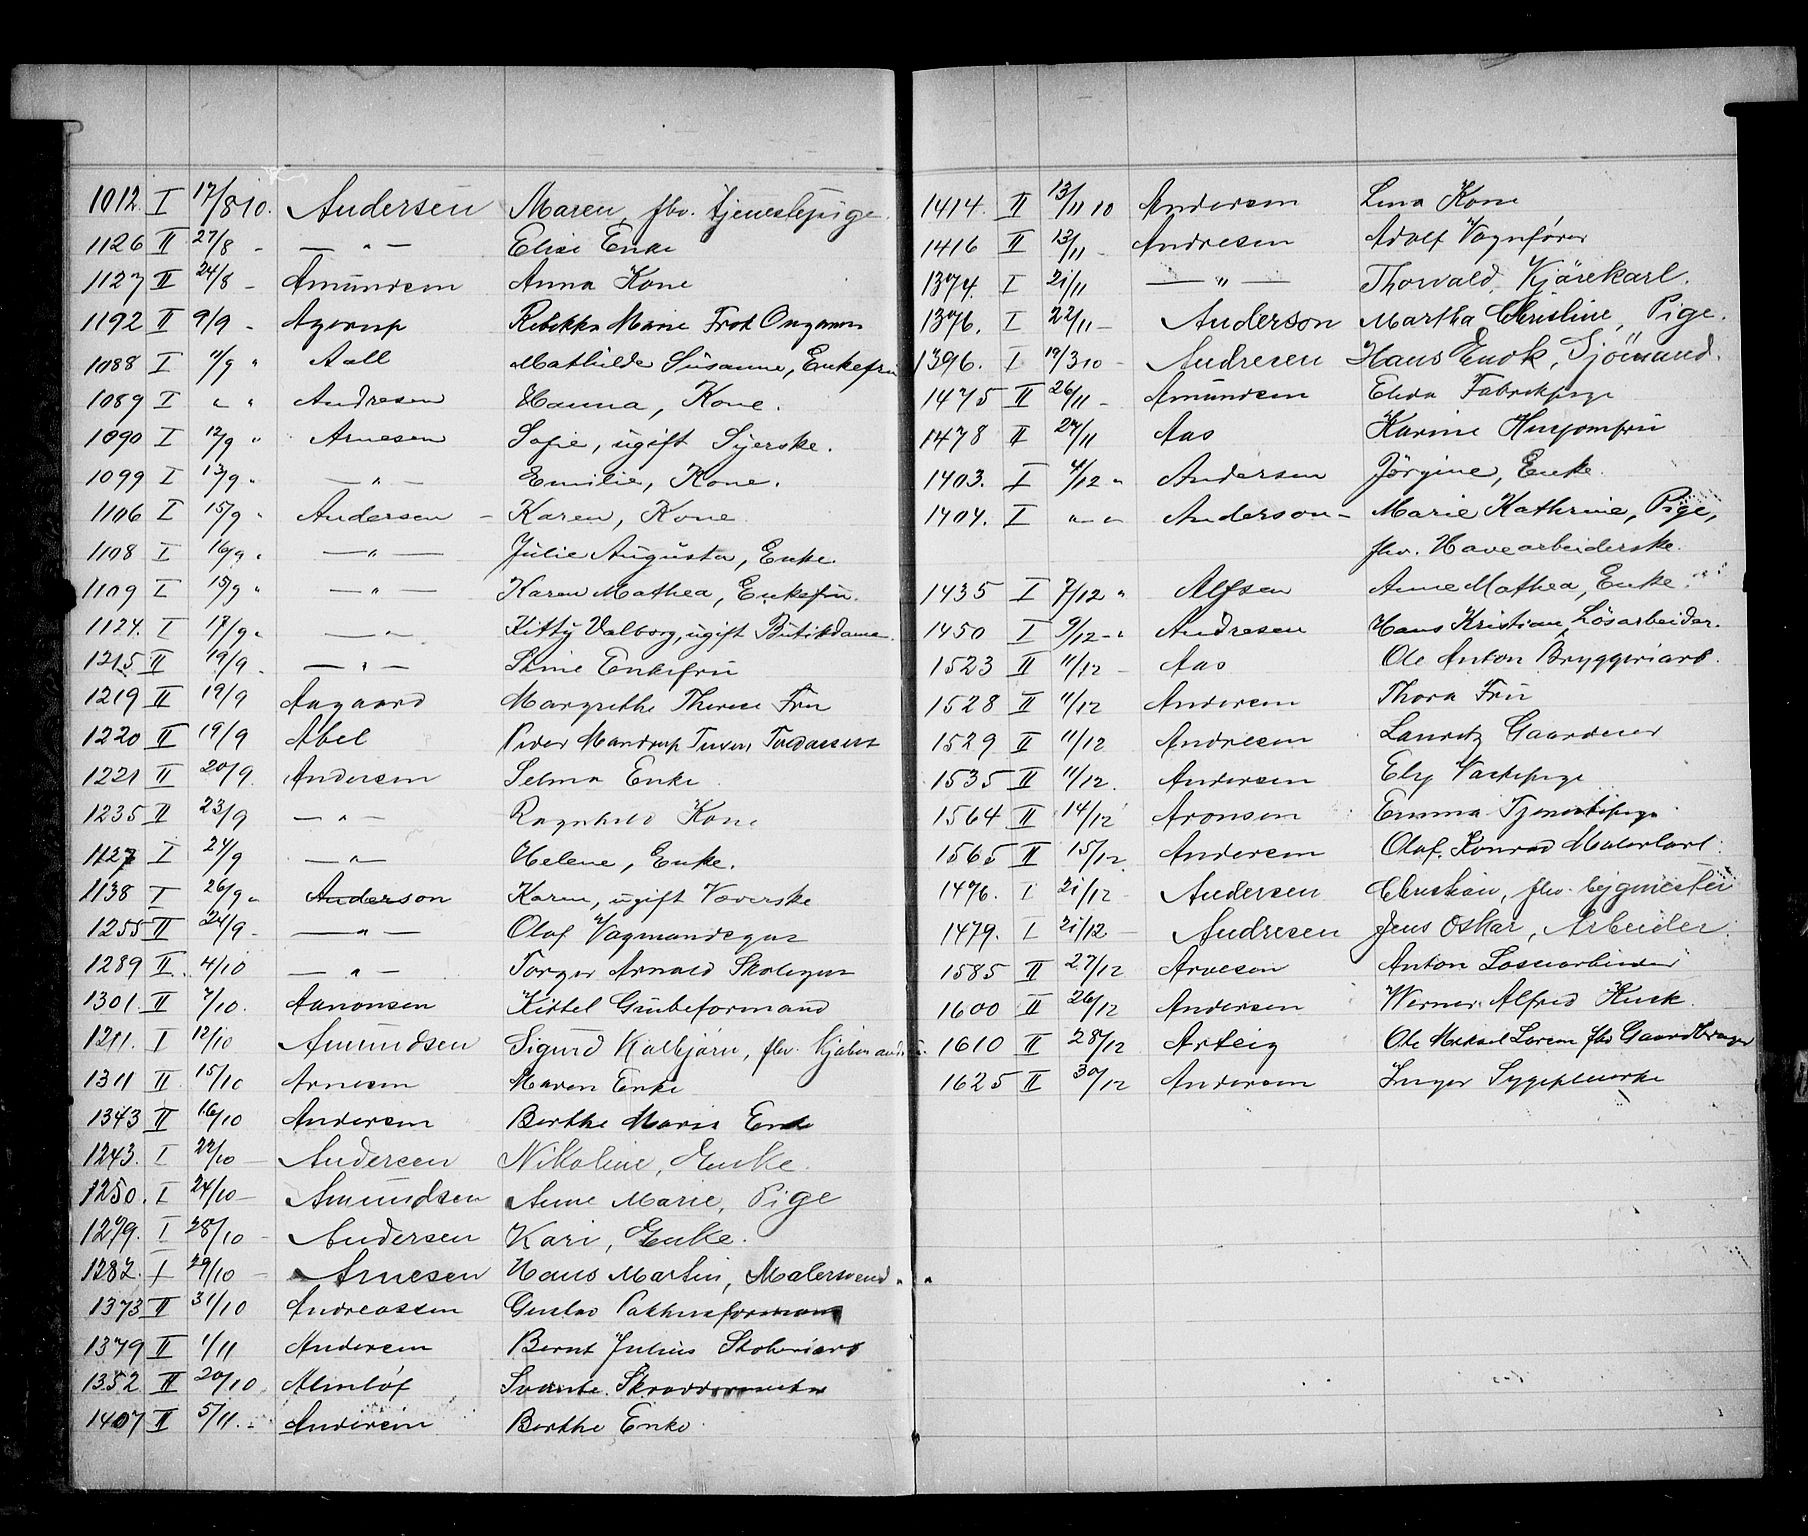 1012. I 17/8 10. Andersen Maren, fhv. tjenestepige.
1126 II 27/8 - — " — Elise Enke
1127 II 24/8 - Amundsen Anna Kone
1192 II 9/9 - Agerup Rebekka Marie Frok
1088 I 11/9 " Aall Mathilde Susanne, Enkefru
1089 I " " Andresen Hanna, Kone.
1090 I 12/9 " Arnesen Sofie, ugift Syerske.
1099 I 13/9 " — " — Emilie, Kone.
1106 I 15/9 " Andersen - Karen, Kone
1108 I 16/9 " — " — Julie Augusta, Enke.
1109 I 15/9 " — " — Karen Mathea, Enkefru.
1124. I 17/9 " — " — Kitty Valborg, ugift Butikdame.
1215 II 19/9 - — " — Stine Enkefru
1219 II 19/9 Aagaard Margrethe Therese Fru
1220 II 19/9 Abel Peder Mandrup Tuxen
1221 II 20/9. Andersen Selma Enke
1235 II 23/9 — " — Ragnhild Kone
1127 I 24/9 — " — Helene, Enke.
1138 I 26/9 " Anderson Karen, ugift Væverske
1255 II 24/9 - — " — Olaf Vagmandsgut
1289 II. 4/10 — " — Torger Arnold Skolegut
1301 II 7/10. Aanonsen Kittel Grubeformand
1211. I 12/10 Amundsen Sigurd Kalbjørn, fhv.
1311 II 15/10 Arnesen Maren Enke
1343 II 16/10 Andersen Berthe Marie Enke
1243. I 22/10 — Andersen Nikoline, Enke.
1250. I 24/10 — Amundsen Anne Marie, Pige
1279. I 28/10 - Andersen Kari, Enke.
1282. I 29/10 - Arnesen Hans Martin, Malersvend.
1373 II 31/10 Andreassen Gustav Pakhusformand
1379 II 1/11 Andersen Bernt Julius
1352 II 20/10. Almløf Svante Skræddermester
1407 II 5/11. - Andersen Berthe Enke
1414. II 13/11 10 Andersen Lina Kone
1416 II 13/11 - Andresen Adolf Vognfører
1374. I 21/11 — " — Thorvald, Kjørekarl.
1376. I 22/11 - Anderson Martha Christine, Pige.
1396. I 19/3 10 - Andresen Hans Enok, Sjömand.
1475 II 26/11 - Amundsen Elida Fabrikpige
1478 II 27/11 Aas Karine Husjomfru
1403. I 4/12 " Andersen Jörgine, Enke.
1404. I " - " Anderson - Marie Kathrine, Pige,
fhv. Havearbeiderske.
1435 I 7/12 " Alfsen Anne Mathea, Enke.
1450 I 9/12 - " Andresen Hans Kristian, Lösarbeider.
1523 II 11/12 - Aas Ole Anton Bryggeriarb.
1528 II 11/12 Andersen Thora Fru
1529 II 11/12 Andresen Lauritz Gaardeier
1535 II 11/12. Andersen Ely Vaskepige
1564 II 14/12 Aronsen Emma Tjenestepige
1565 II 15/12. Andersen Olaf Konrad
1476. I 21/12 - Andersen Christian, fhv. bygmester
1479. I 21/12 — Andresen Jens Oskar, Arbeider.
1585 II 27/12 Arvesen Anton Løsearbeider
1600 II 26/12 Andersen Werner Alfred Kusk.
1610 II 28/12 Arteig Ole Mikael Loren fhv Gaardbruger
1625 II 30/12 Andersen Inger Sygepleierske